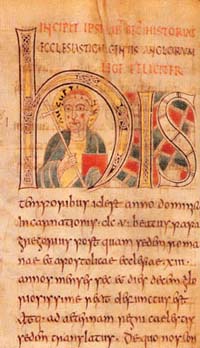 INCIPIT IPSIUS LIB HISTORIAE
ECCLESIASTICAE GENTIS ANGLORUM
LEGE FELICITER
hIS
temporibus id est anno domini
incarnationis dc v beatus papa
gregorius post quam sedem roma
nae et apostolicae ecclesiae xiii
annos menses sex et dies decem glo
riosissime rexit defunctus est
atq ad aeternam regni caelestis
sedem translatus De quo nos con